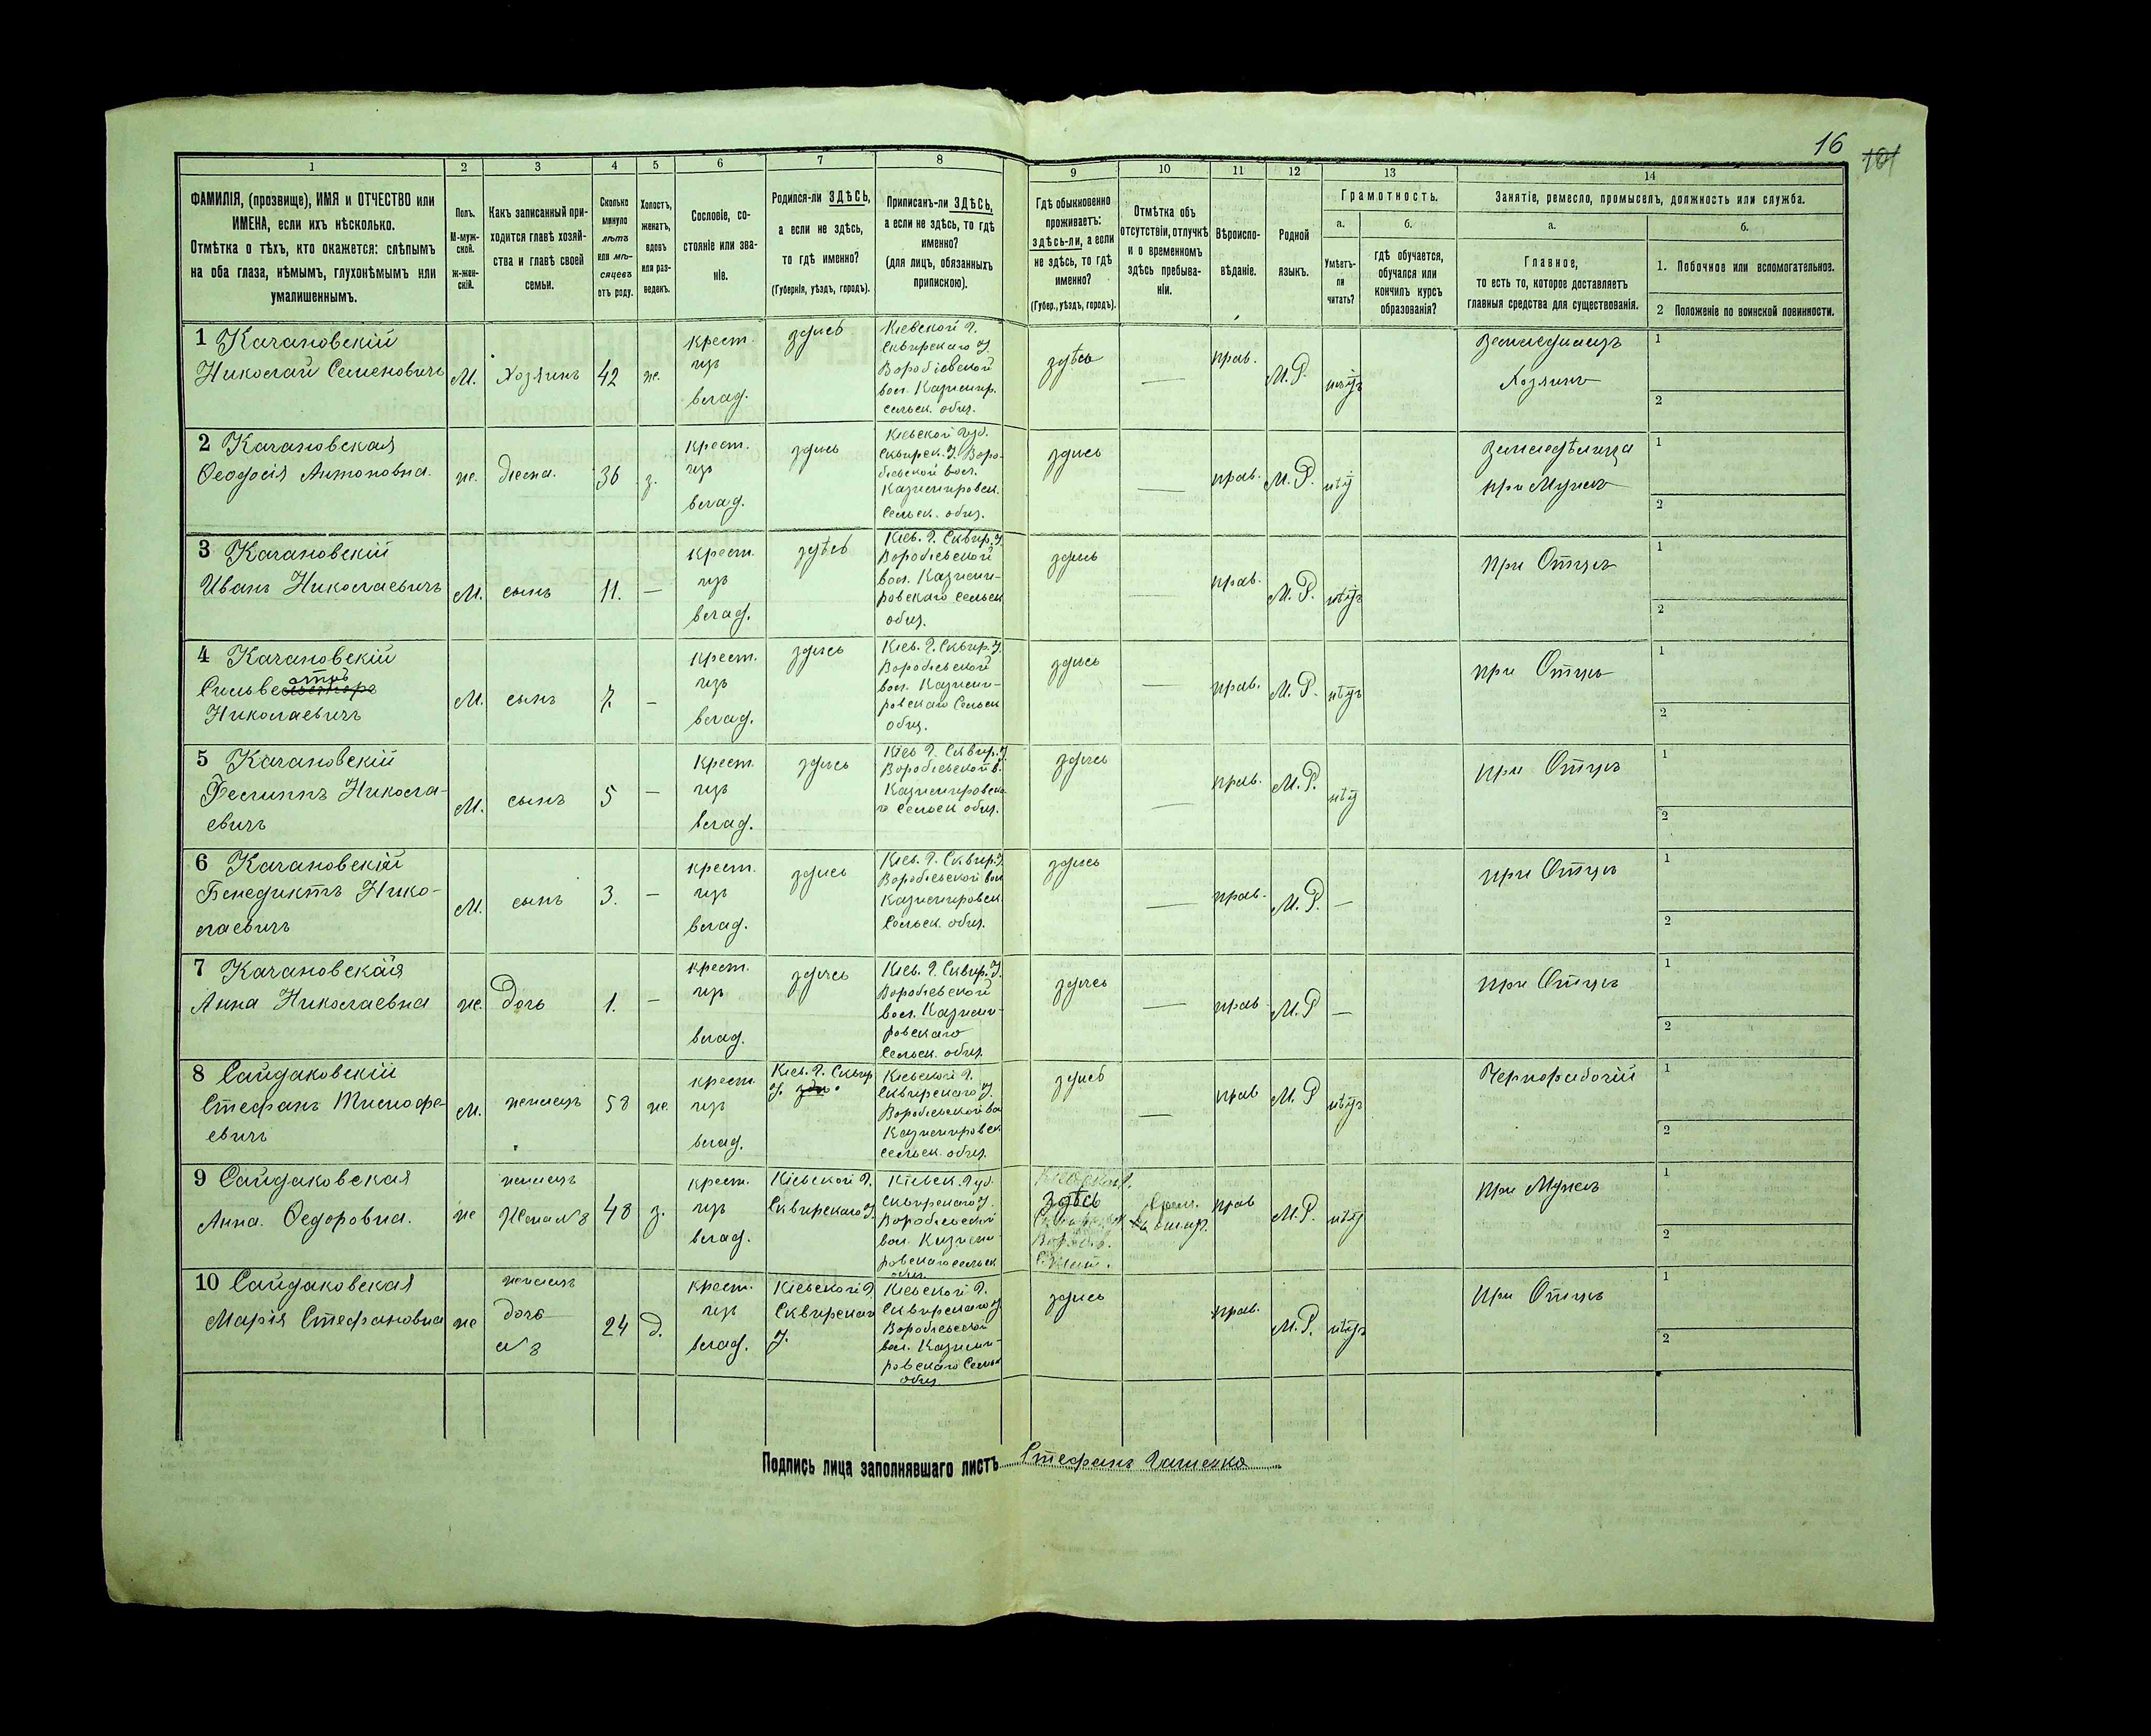 16
101
1
2
3
4
5
6
7
8
9
10
11
12
13
14
ФАМИЛІЯ, (прозвище), ИМЯ и ОТЧЕСТВО или
ИМЕНА, если ихъ нѣсколько.
Отмѣтка о тѣхъ, кто окажется: слѣпымъ
на оба глаза, нѣмымъ, глухонѣмымъ или
умалишеннымъ.
Полъ.
М-муж-
ской.
ж-жен-
скій.
Какъ записанный при-
ходится главѣ хозяй-
ства и главѣ своей
семьи.
Сколько
минуло
лѣтъ
или мѣ-
сяцевъ
отъ роду.
Холостъ,
женатъ,
вдовъ
или раз-
веденъ.
Сословіе, со-
стояніе или зва-
ніе.
Родился-ли ЗДѢСЬ,
а если не здѣсь,
то гдѣ именно?
(Губернія, уѣздъ, городъ).
Приписанъ-ли ЗДѢСЬ,
а если не здѣсь, то гдѣ
именно?
(для лицъ, обязанныхъ
припискою).
Гдѣ обыкновенно
проживаетъ:
здѣсь-ли, а если
не здѣсь, то гдѣ
именно?
(Губер., уѣздъ, городъ).
Отмѣтка объ
отсутствіи, отлучкѣ
и о временномъ
здѣсь пребыва-
ніи.
Вѣроиспо-
вѣданіе.
Родной
языкъ.
Грамотность.
а.
Умѣетъ-
ли
читать?
б.
гдѣ обучается,
обучался или
кончилъ курсъ
образованія?
Занятіе, ремесло, промыселъ, должность или служба.
а.
Главное,
то есть то, которое доставляетъ
главныя средства для существованія.
б.
1. Побочное или вспомогательное.
2 Положеніе по воинской повинности.
1 Качановскій
Николай Семеновичъ
М.
Хозяинъ
42
же.
крест.
изъ
влад.
здѣсь
Кіевской Г.
Сквирскаго У.
Воробіевской
вол. Казимир.
сельск. общ.
здѣсь
—
прав.
М.Р.
нѣтъ
Земледѣлецъ
Хозяинъ
1
2
2 Качановская
Ѳеодосія Антоновна.
же.
жена.
36
з.
крест.
изъ
влад.
здѣсь
Кіевской Губ.
Сквирск. У. Воро-
біевской вол.
Казимировск.
Сельск. общ.
здѣсь
—
прав.
М.Р.
нѣтъ
Земледѣлица
при Мужѣ
1
2
3 Качановскій
Иванъ Николаевичъ
М.
сынъ
11.
—
крест.
изъ
влад.
здѣсь
Кіев. Г. Сквир. У.
Воробіевской
вол. Казими-
ровскаго Сельск
общ.
здѣсь
—
прав.
М.Р.
нѣтъ
при Отцѣ
1
2
4 Качановскій
Николаевичъ
М.
сынъ
7.
—
крест.
изъ
влад.
здѣсь
Кіев. Г. Сквир. У.
Воробіевской
вол. Казими-
ровскаго Сельск
общ.
здѣсь
—
прав.
М.Р.
нѣтъ
при Отцѣ
1
2
5 Качановскій
Филиппъ Никола-
евичъ
М.
сынъ
5
—
крест.
изъ
влад.
здѣсь
Кіев Г. Сквир. У
Воробіевской в.
Казимировска-
го Сельск общ.
здѣсь
—
прав.
М.Р.
нѣтъ
при Отцѣ
1
2
6 Качановскій
Бенедиктъ Нико-
лаевичъ
М.
сынъ
3.
—
крест.
изъ
влад.
здѣсь
Кіев. Г. Сквир. У.
Воробіевской вол
Казимировск.
Сельск. общ.
здѣсь
—
прав.
М.Р.
—
при Отцѣ
1
2
7 Качановская
Анна Николаевна
же.
Дочь
1.
—
крест.
изъ
влад.
здѣсь
Кіев. Г. Сквир. У.
Воробіевской
вол. Казими-
ровскаго
Сельск. общ.
здѣсь
—
прав
М.Р
—
при Отцѣ
1
2
8 Сайдаковскій
Стефанъ Тимофе-
евичъ
М.
жилецъ
58
же.
крест.
изъ
влад.
Кіев. Г. Сквир
У.
Кіевской Г.
Сквирскаго У.
Воробіевской во
Казимировск
сельск. общ.
здѣсь
—
прав
М.Р
нѣтъ
Чернорабочій
1
2
9 Сайдаковская
Анна. Ѳедоровна.
же
жилецъ
Жена №8
48
з.
крест.
изъ
влад.
Кіевской Г.
Сквирскаго У.
Кіевск. Губ.
Сквирскаго У.
Воробіевской
вол. Казими-
ровскаго сельск
общ.
здѣсь
прав
М.Р.
нѣтъ
при Мужѣ
1
2
10 Сайдаковская
Марія Стефановна
же
жилецъ
дочь
№8
24
д.
крест.
изъ
влад.
Кіевской Г.
Сквирскаго
У.
Кіевской Г.
Сквирскаго У.
Воробіевской
вол. Казими-
ровскаго Сельск
общ.
здѣсь
прав.
М.Р.
нѣтъ
при Отцѣ
1
2
Подпись лица заполнявшаго листъ Стефанъ